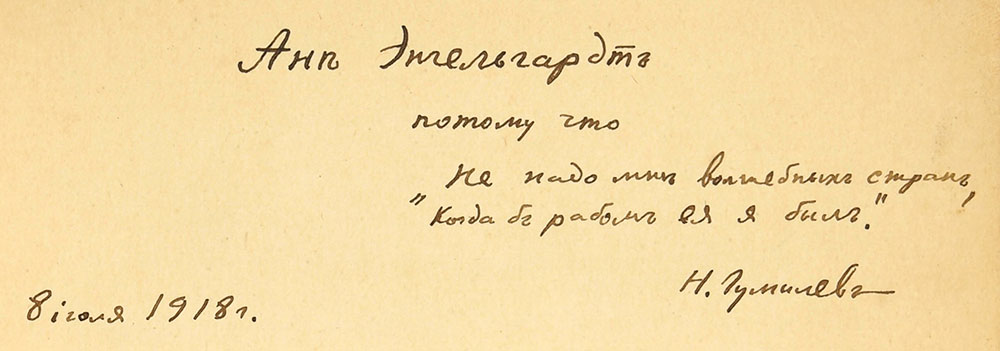 Анѣ Энгельгардтъ
потому что
Не надо мнѣ волшебныхъ странъ,
"Когда бъ рабомъ ея я былъ."
Н. Гумилевъ
8 іюля 1918 г.